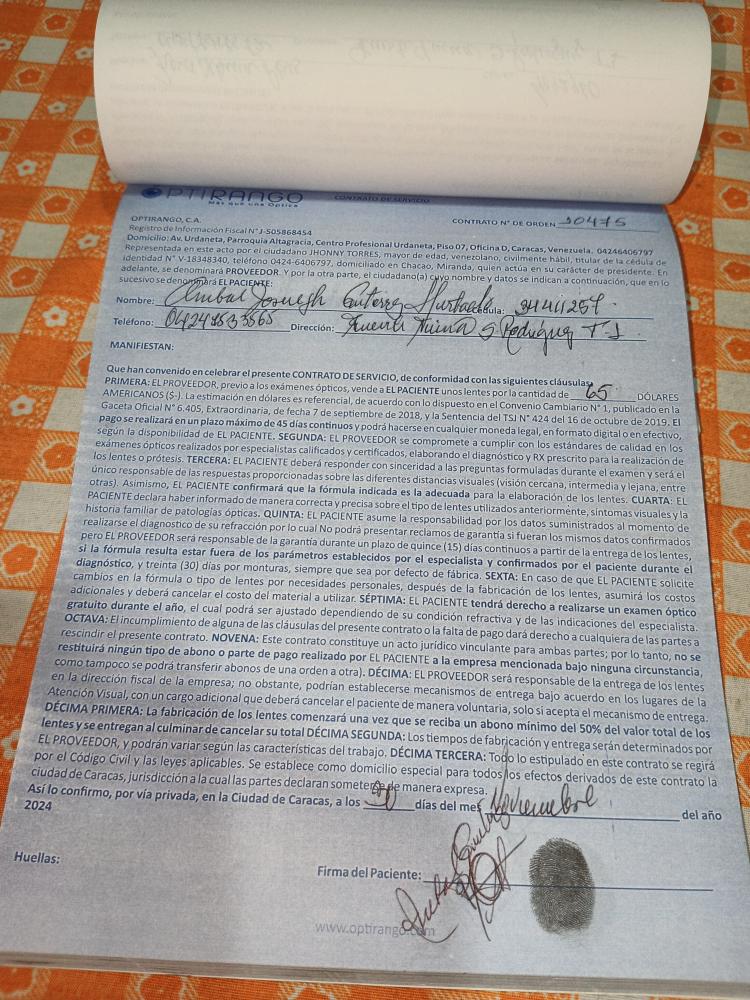 OPTIRANGO
Más que una Óptica
CONTRATO DE SERVICIO
OPTIRANGO, C.A.
CONTRATO N° DE ORDEN 30475
Registro de Información Fiscal N° J-505868454
Domicilio: Av. Urdaneta, Parroquia Altagracia, Centro Profesional Urdaneta, Piso 07, Oficina D, Caracas, Venezuela. 04246406797
Representada en este acto por el ciudadano JHONNY TORRES, mayor de edad, venezolano, civilmente hábil, titular de la cédula de
identidad N° V-18348340, teléfono 0424-6406797, domiciliado en Chacao, Miranda, quien actúa en su carácter de presidente. En
adelante, se denominará PROVEEDOR. Y por la otra parte, el ciudadano(a) cuyo nombre y datos se indican a continuación, que en lo
sucesivo se denominará EL PACIENTE:
Nombre: Hurtado Cédula:
Teléfono: Dirección: Rodríguez
MANIFIESTAN:
Que han convenido en celebrar el presente CONTRATO DE SERVICIO, de conformidad con las siguientes cláusulas:
PRIMERA: EL PROVEEDOR, previo a los exámenes ópticos, vende a EL PACIENTE unos lentes por la cantidad de 65 DÓLARES
AMERICANOS ($-). La estimación en dólares es referencial, de acuerdo con lo dispuesto en el Convenio Cambiario N° 1, publicado en la
Gaceta Oficial N° 6.405, Extraordinaria, de fecha 7 de septiembre de 2018, y la Sentencia del TSJ N° 424 del 16 de octubre de 2019. El
pago se realizará en un plazo máximo de 45 días continuos y podrá hacerse en cualquier moneda legal, en formato digital o en efectivo,
según la disponibilidad de EL PACIENTE. SEGUNDA: EL PROVEEDOR se compromete a cumplir con los estándares de calidad en los
exámenes ópticos realizados por especialistas calificados y certificados, elaborando el diagnóstico y RX prescrito para la realización de
los lentes o prótesis. TERCERA: EL PACIENTE deberá responder con sinceridad a las preguntas formuladas durante el examen y será el
único responsable de las respuestas proporcionadas sobre las diferentes distancias visuales (visión cercana, intermedia y lejana, entre
otras). Asimismo, EL PACIENTE confirmará que la fórmula indicada es la adecuada para la elaboración de los lentes. CUARTA: EL
PACIENTE declara haber informado de manera correcta y precisa sobre el tipo de lentes utilizados anteriormente, síntomas visuales y la
historia familiar de patologías ópticas. QUINTA: EL PACIENTE asume la responsabilidad por los datos suministrados al momento de
realizarse el diagnostico de su refracción por lo cual No podrá presentar reclamos de garantía si fueran los mismos datos confirmados
pero EL PROVEEDOR será responsable de la garantía durante un plazo de quince (15) días continuos a partir de la entrega de los lentes,
si la fórmula resulta estar fuera de los parámetros establecidos por el especialista y confirmados por el paciente durante el
diagnóstico, y treinta (30) días por monturas, siempre que sea por defecto de fábrica. SEXTA: En caso de que EL PACIENTE solicite
cambios en la fórmula o tipo de lentes por necesidades personales, después de la fabricación de los lentes, asumirá los costos
adicionales y deberá cancelar el costo del material a utilizar. SÉPTIMA: EL PACIENTE tendrá derecho a realizarse un examen óptico
gratuito durante el año, el cual podrá ser ajustado dependiendo de su condición refractiva y de las indicaciones del especialista.
OCTAVA: El incumplimiento de alguna de las cláusulas del presente contrato o la falta de pago dará derecho a cualquiera de las partes a
rescindir el presente contrato. NOVENA: Este contrato constituye un acto jurídico vinculante para ambas partes; por lo tanto, no se
restituirá ningún tipo de abono o parte de pago realizado por EL PACIENTE a la empresa mencionada bajo ninguna circunstancia,
como tampoco se podrá transferir abonos de una orden a otra). DÉCIMA: EL PROVEEDOR será responsable de la entrega de los lentes
en la dirección fiscal de la empresa; no obstante, podrían establecerse mecanismos de entrega bajo acuerdo en los lugares de la
Atención Visual, con un cargo adicional que deberá cancelar el paciente de manera voluntaria, solo si acepta el mecanismo de entrega.
DÉCIMA PRIMERA: La fabricación de los lentes comenzará una vez que se reciba un abono mínimo del 50% del valor total de los
lentes y se entregan al culminar de cancelar su total DÉCIMA SEGUNDA: Los tiempos de fabricación y entrega serán determinados por
EL PROVEEDOR, y podrán variar según las características del trabajo. DÉCIMA TERCERA: Todo lo estipulado en este contrato se regirá
por el Código Civil y las leyes aplicables. Se establece como domicilio especial para todos los efectos derivados de este contrato la
ciudad de Caracas, jurisdicción a la cual las partes declaran someterse de manera expresa.
Así lo confirmo, por vía privada, en la Ciudad de Caracas, a los 30 días del mes Noviembre del año
2024
Huellas:
Firma del Paciente:
www.optirango.com